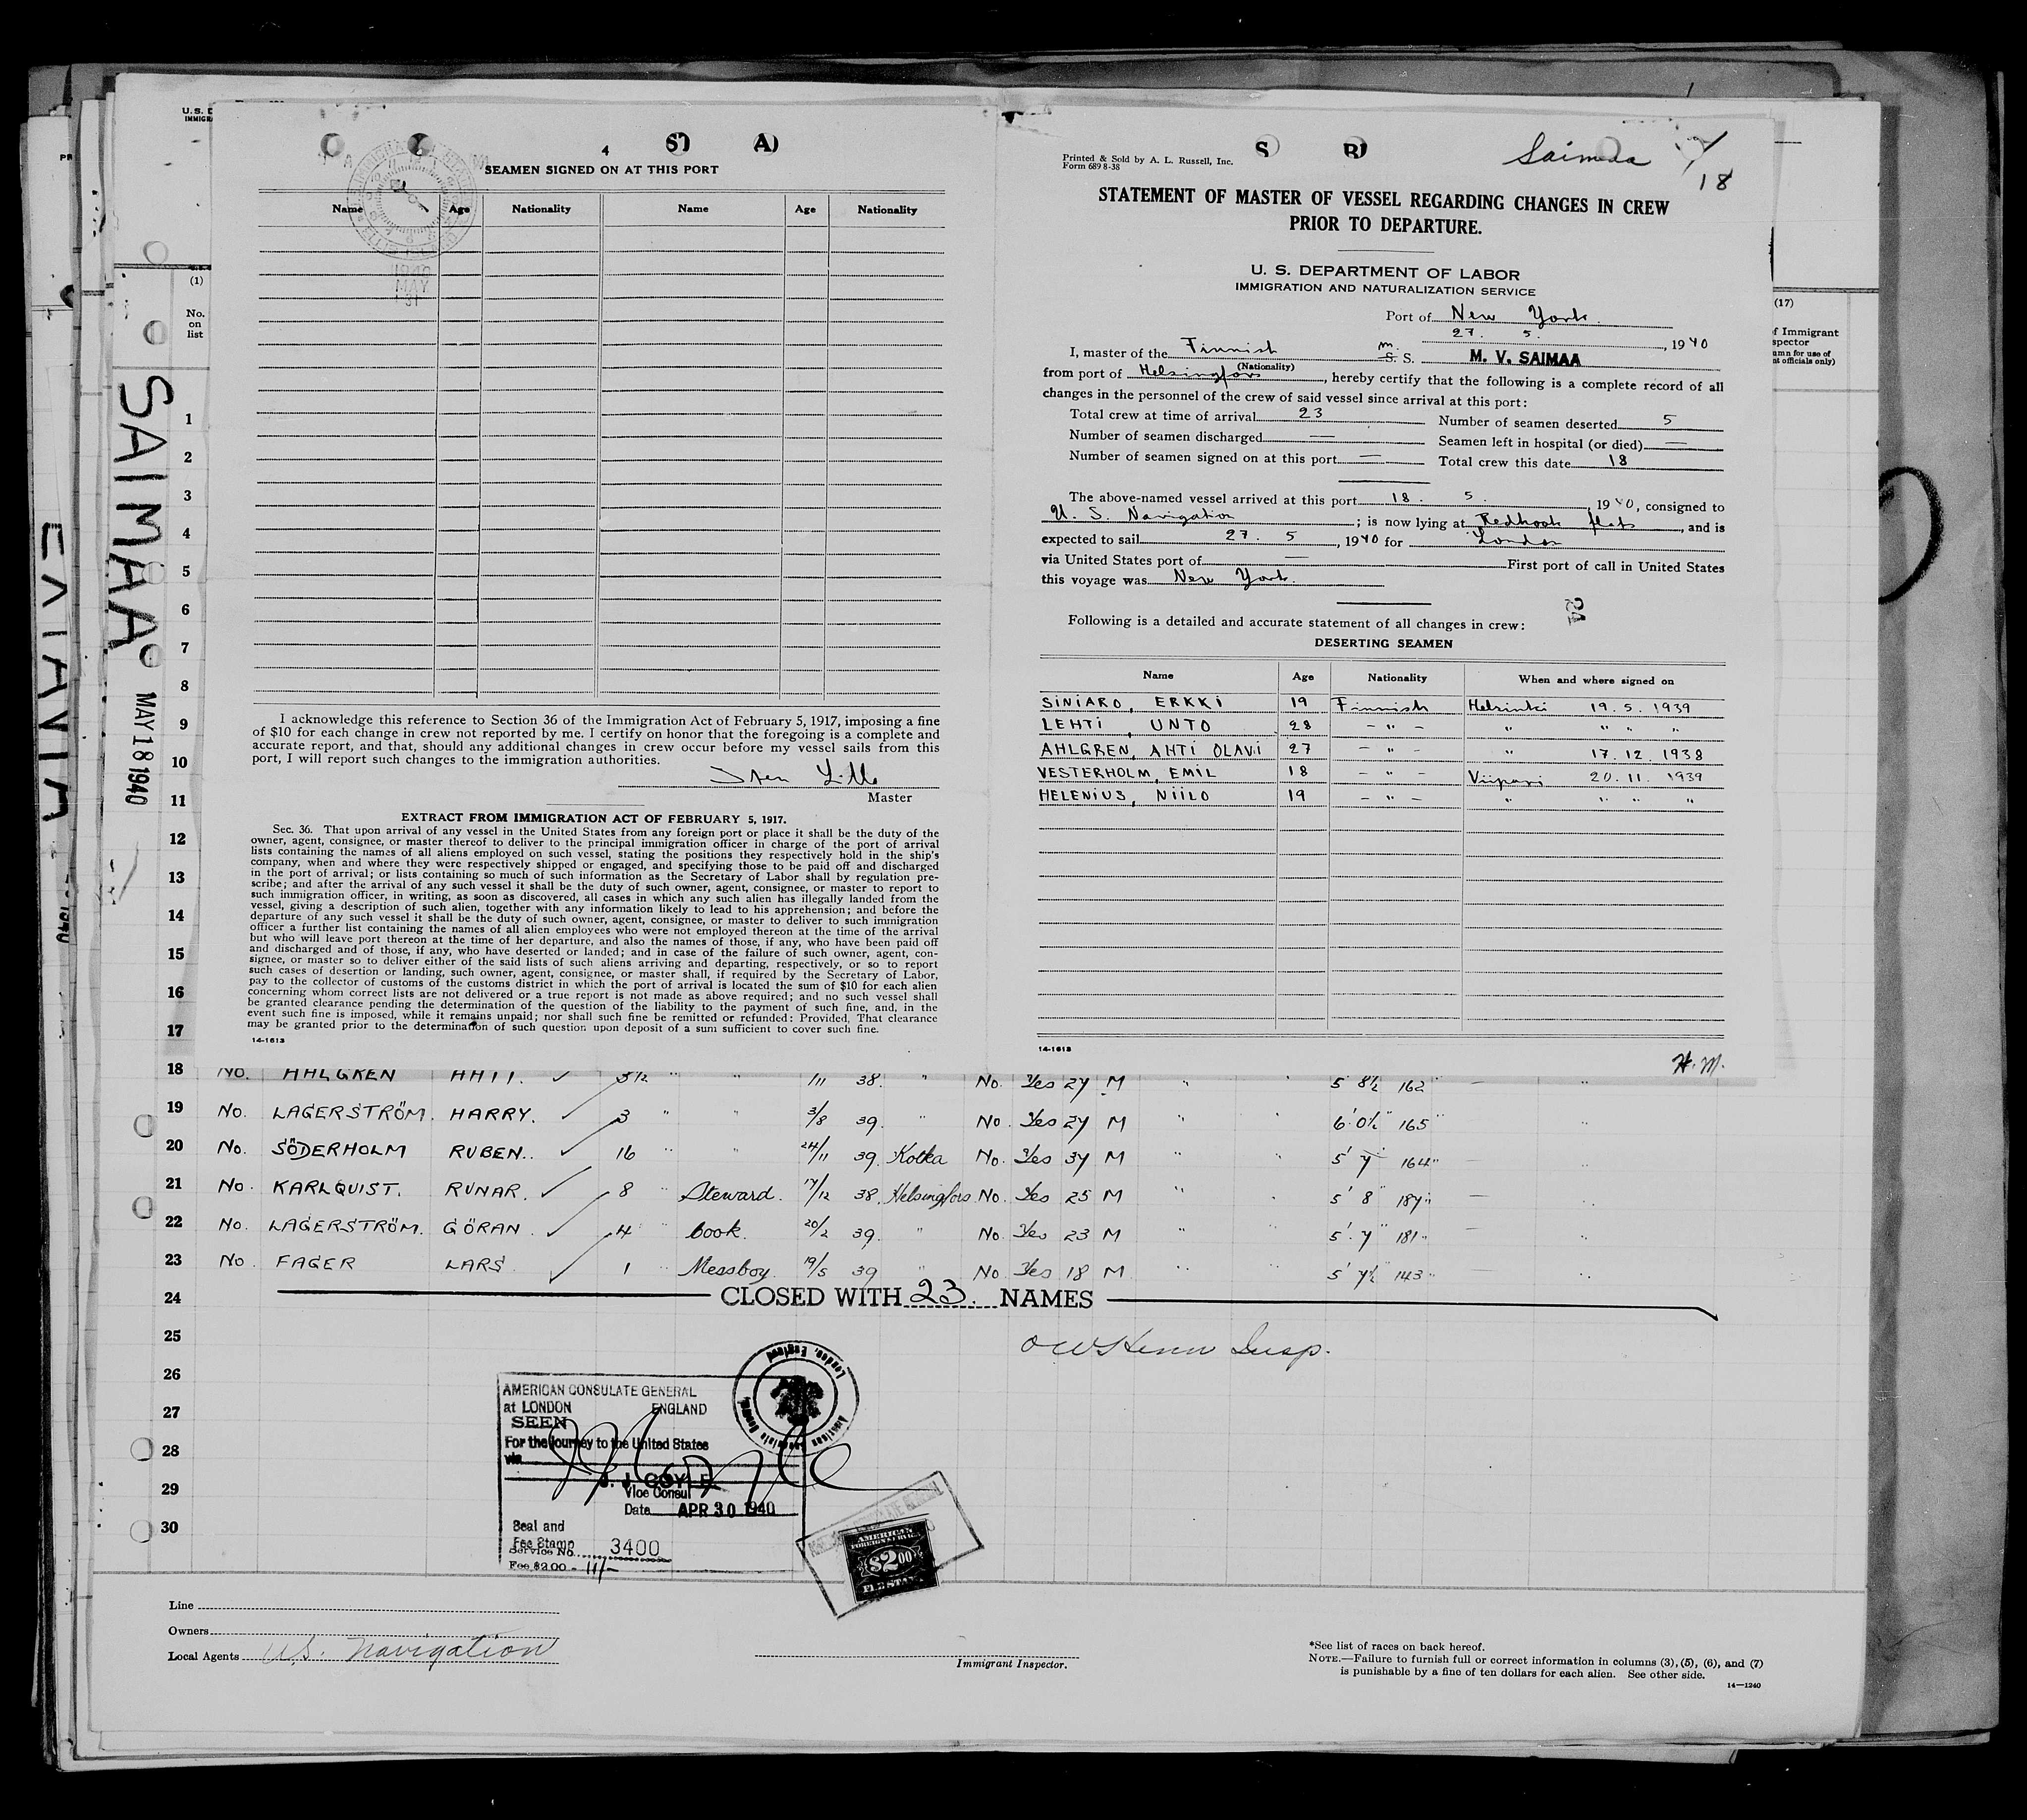 4
SEAMEN SIGNED ON AT THIS PORT
Name Age Nationality Name Age Nationality
1940
MAY
31
I acknowledge this reference to Section 36 of the Immigration Act of February 5, 1917, imposing a fine
of $10 for each change in crew not reported by me. I certify on honor that the foregoing is a complete and
accurate report, and that, should any additional changes in crew occur before my vessel sails from this
port, I will report such changes to the immigration authorities.
Master
EXTRACT FROM IMMIGRATION ACT OF FEBRUARY 5, 1917.
Sec. 36. That upon arrival of any vessel in the United States from any foreign port or place it shall be the duty of the
owner, agent, consignee, or master thereof to deliver to the principal immigration officer in charge of the port of arrival
lists containing the names of all aliens employed on such vessel, stating the positions they respectively hold in the ship's
company, when and where they were respectively shipped or engaged, and specifying those to be paid off and discharged
in the port of arrival; or lists containing so much of such information as the Secretary of Labor shall by regulation pre-
scribe; and after the arrival of any such vessel it shall be the duty of such owner, agent, consignee, or master to report to
such immigration officer, in writing, as soon as discovered, all cases in which any such alien has illegally landed from the
vessel, giving a description of such alien, together with any information likely to lead to his apprehension; and before the
departure of any such vessel it shall be the duty of such owner, agent, consignee, or master to deliver to such immigration
officer a further list containing the names of all alien employees who were not employed thereon at the time of the arrival
but who will leave port thereon at the time of her departure, and also the names of those, if any, who have been paid off
and discharged and of those, if any, who have deserted or landed; and in case of the failure of such owner, agent, con-
signee, or master so to deliver either of the said lists of such aliens arriving and departing, respectively, or so to report
such cases of desertion or landing, such owner, agent, consignee, or master shall, if required by the Secretary of Labor,
pay to the collector of customs of the customs district in which the port of arrival is located the sum of $10 for each alien
concerning whom correct lists are not delivered or a true report is not made as above required; and no such vessel shall
be granted clearance pending the determination of the question of the liability to the payment of such fine, and, in the
event such fine is imposed, while it remains unpaid; nor shall such fine be remitted or refunded: Provided, That clearance
may be granted prior to the determination of such question upon deposit of a sum sufficient to cover such fine.
14-1613
Printed & Sold by A. L. Russell, Inc.
Form 689 8-38
Saimaa
18
STATEMENT OF MASTER OF VESSEL REGARDING CHANGES IN CREW
PRIOR TO DEPARTURE.
U. S. DEPARTMENT OF LABOR
IMMIGRATION AND NATURALIZATION SERVICE
Port of New York.
27. 5. , 1940
I, master of the Finnish m. S. S. M. V. SAIMAA
(Nationality)
from port of Helsingfors, hereby certify that the following is a complete record of all
changes in the personnel of the crew of said vessel since arrival at this port:
Total crew at time of arrival 23 Number of seamen deserted 5
Number of seamen discharged — Seamen left in hospital (or died) —
Number of seamen signed on at this port — Total crew this date 18
The above-named vessel arrived at this port 18. 5. , 1940, consigned to
U. S. Navigation ; is now lying at Redhook flats, and is
expected to sail 27. 5 , 1940 for London
via United States port of — First port of call in United States
this voyage was New York.
24
Following is a detailed and accurate statement of all changes in crew:
DESERTING SEAMEN
Name Age Nationality When and where signed on
SINIARO, ERKKI 19 Finnish Helsinki 19. 5. 1939
LEHTI, UNTO 28 – " – " " " "
AHLGREN, AHTI OLAVI 27 – " – " 17. 12. 1938
VESTERHOLM, EMIL 18 – " – Viipuri 20. 11. 1939
HELENIUS, NIILO 19 – " – " " " "
14-1613
H. M.
(1)
No.
on
list
SAIMAA
MAY 18 1940
(17)
1
2
3
4
5
6
7
8
9
10
11
12
13
14
15
16
17
18 No. AHLGREN AHTI. 3½ " " /11 38. " No. Yes 27 M " " 5 8½ 162" "
19 No. LAGERSTRÖM. HARRY. 3 " " 3/8 39. " No. Yes 27 M " " 6' 0½" 165" "
20 No. SÖDERHOLM RUBEN. 16 " " 24/11 39. Kotka No. Yes 37 M " " 5' 7" 164" —
21 No. KARLQUIST. RUNAR. 8 " Steward. 17/12 38. Helsingfors. No. Yes 25 M " " 5' 8" 187" —
22 No. LAGERSTRÖM. GÖRAN. 4 " Cook. 20/2 39. " No. Yes 23 M " " 5' 7" 181" —
23 No. FAGER LARS. 1 " Messboy. 19/5 39 " No Yes 18 M " " 5' 7½" 143" —
24 CLOSED WITH 23. NAMES
25
26
27
28
29
30
AMERICAN CONSULATE GENERAL
at LONDON ENGLAND
SEEN
For the journey to the United States
via
J. J. COYLE
Vice Consul
Date APR 30 1940
Seal and
Fee Stamp
Service No. 3400
Fee $2.00 = 11/-
American Consulate General
London, England
AMERICAN
FOREIGN SERVICE
$2.00
FEE STAMP
Line
Owners
Local Agents U.S. Navigation
Immigrant Inspector.
*See list of races on back hereof.
NOTE.—Failure to furnish full or correct information in columns (3), (5), (6), and (7)
is punishable by a fine of ten dollars for each alien. See other side.
14—1240